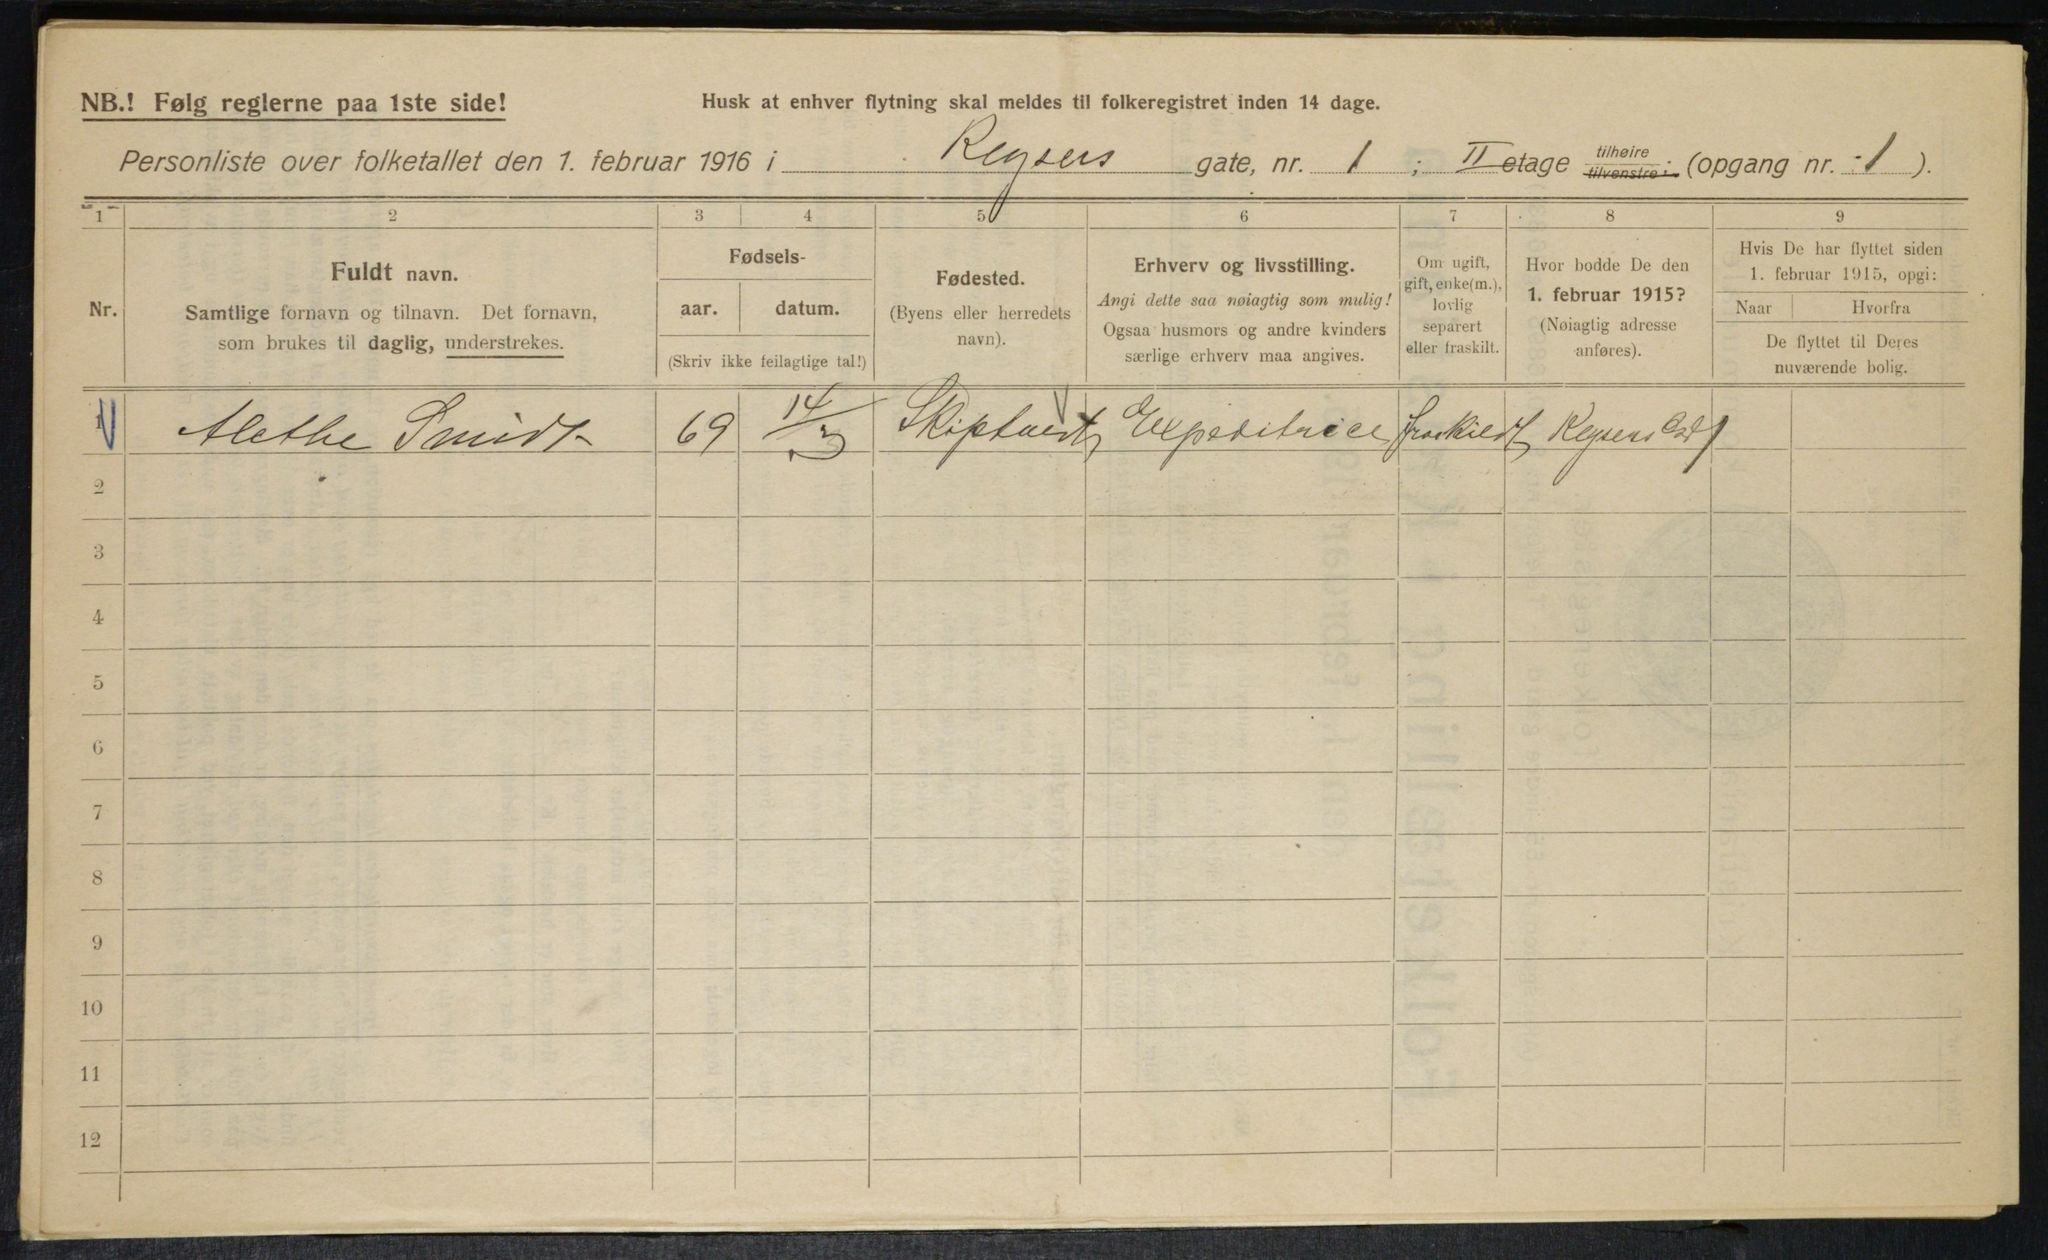 NB.! Følg reglerne paa 1ste side!
Husk at enhver flytning skal meldes til folkeregistret inden 14 dage.
Personliste over folketallet den 1. februar 1916 i Keysers gate, nr. 1 ; II etage tilhøire tilvenstre; (opgang nr. 1 ).
1 2 3 4 5 6 7 8 9
Nr.
Fuldt navn.
Samtlige fornavn og tilnavn. Det fornavn,
som brukes til daglig, understrekes.
Fødsels-
aar. datum.
(Skriv ikke feilagtige tal!)
Fødested.
(Byens eller herredets
navn).
Erhverv og livsstilling.
Angi dette saa nøiagtig som mulig!
Ogsaa husmors og andre kvinders
særlige erhverv maa angives.
Om ugift,
gift, enke(m.),
lovlig
separert
eller fraskilt.
Hvor bodde De den
1. februar 1915?
(Nøiagtig adresse
anføres).
Hvis De har flyttet siden
1. februar 1915, opgi:
Naar Hvorfra
De flyttet til Deres
nuværende bolig.
1 Alethe Smidt 69 14/3 Skiptvedt Expeditrice fraskildt Keysers Gd 1
2
3
4
5
6
7
8
9
10
11
12